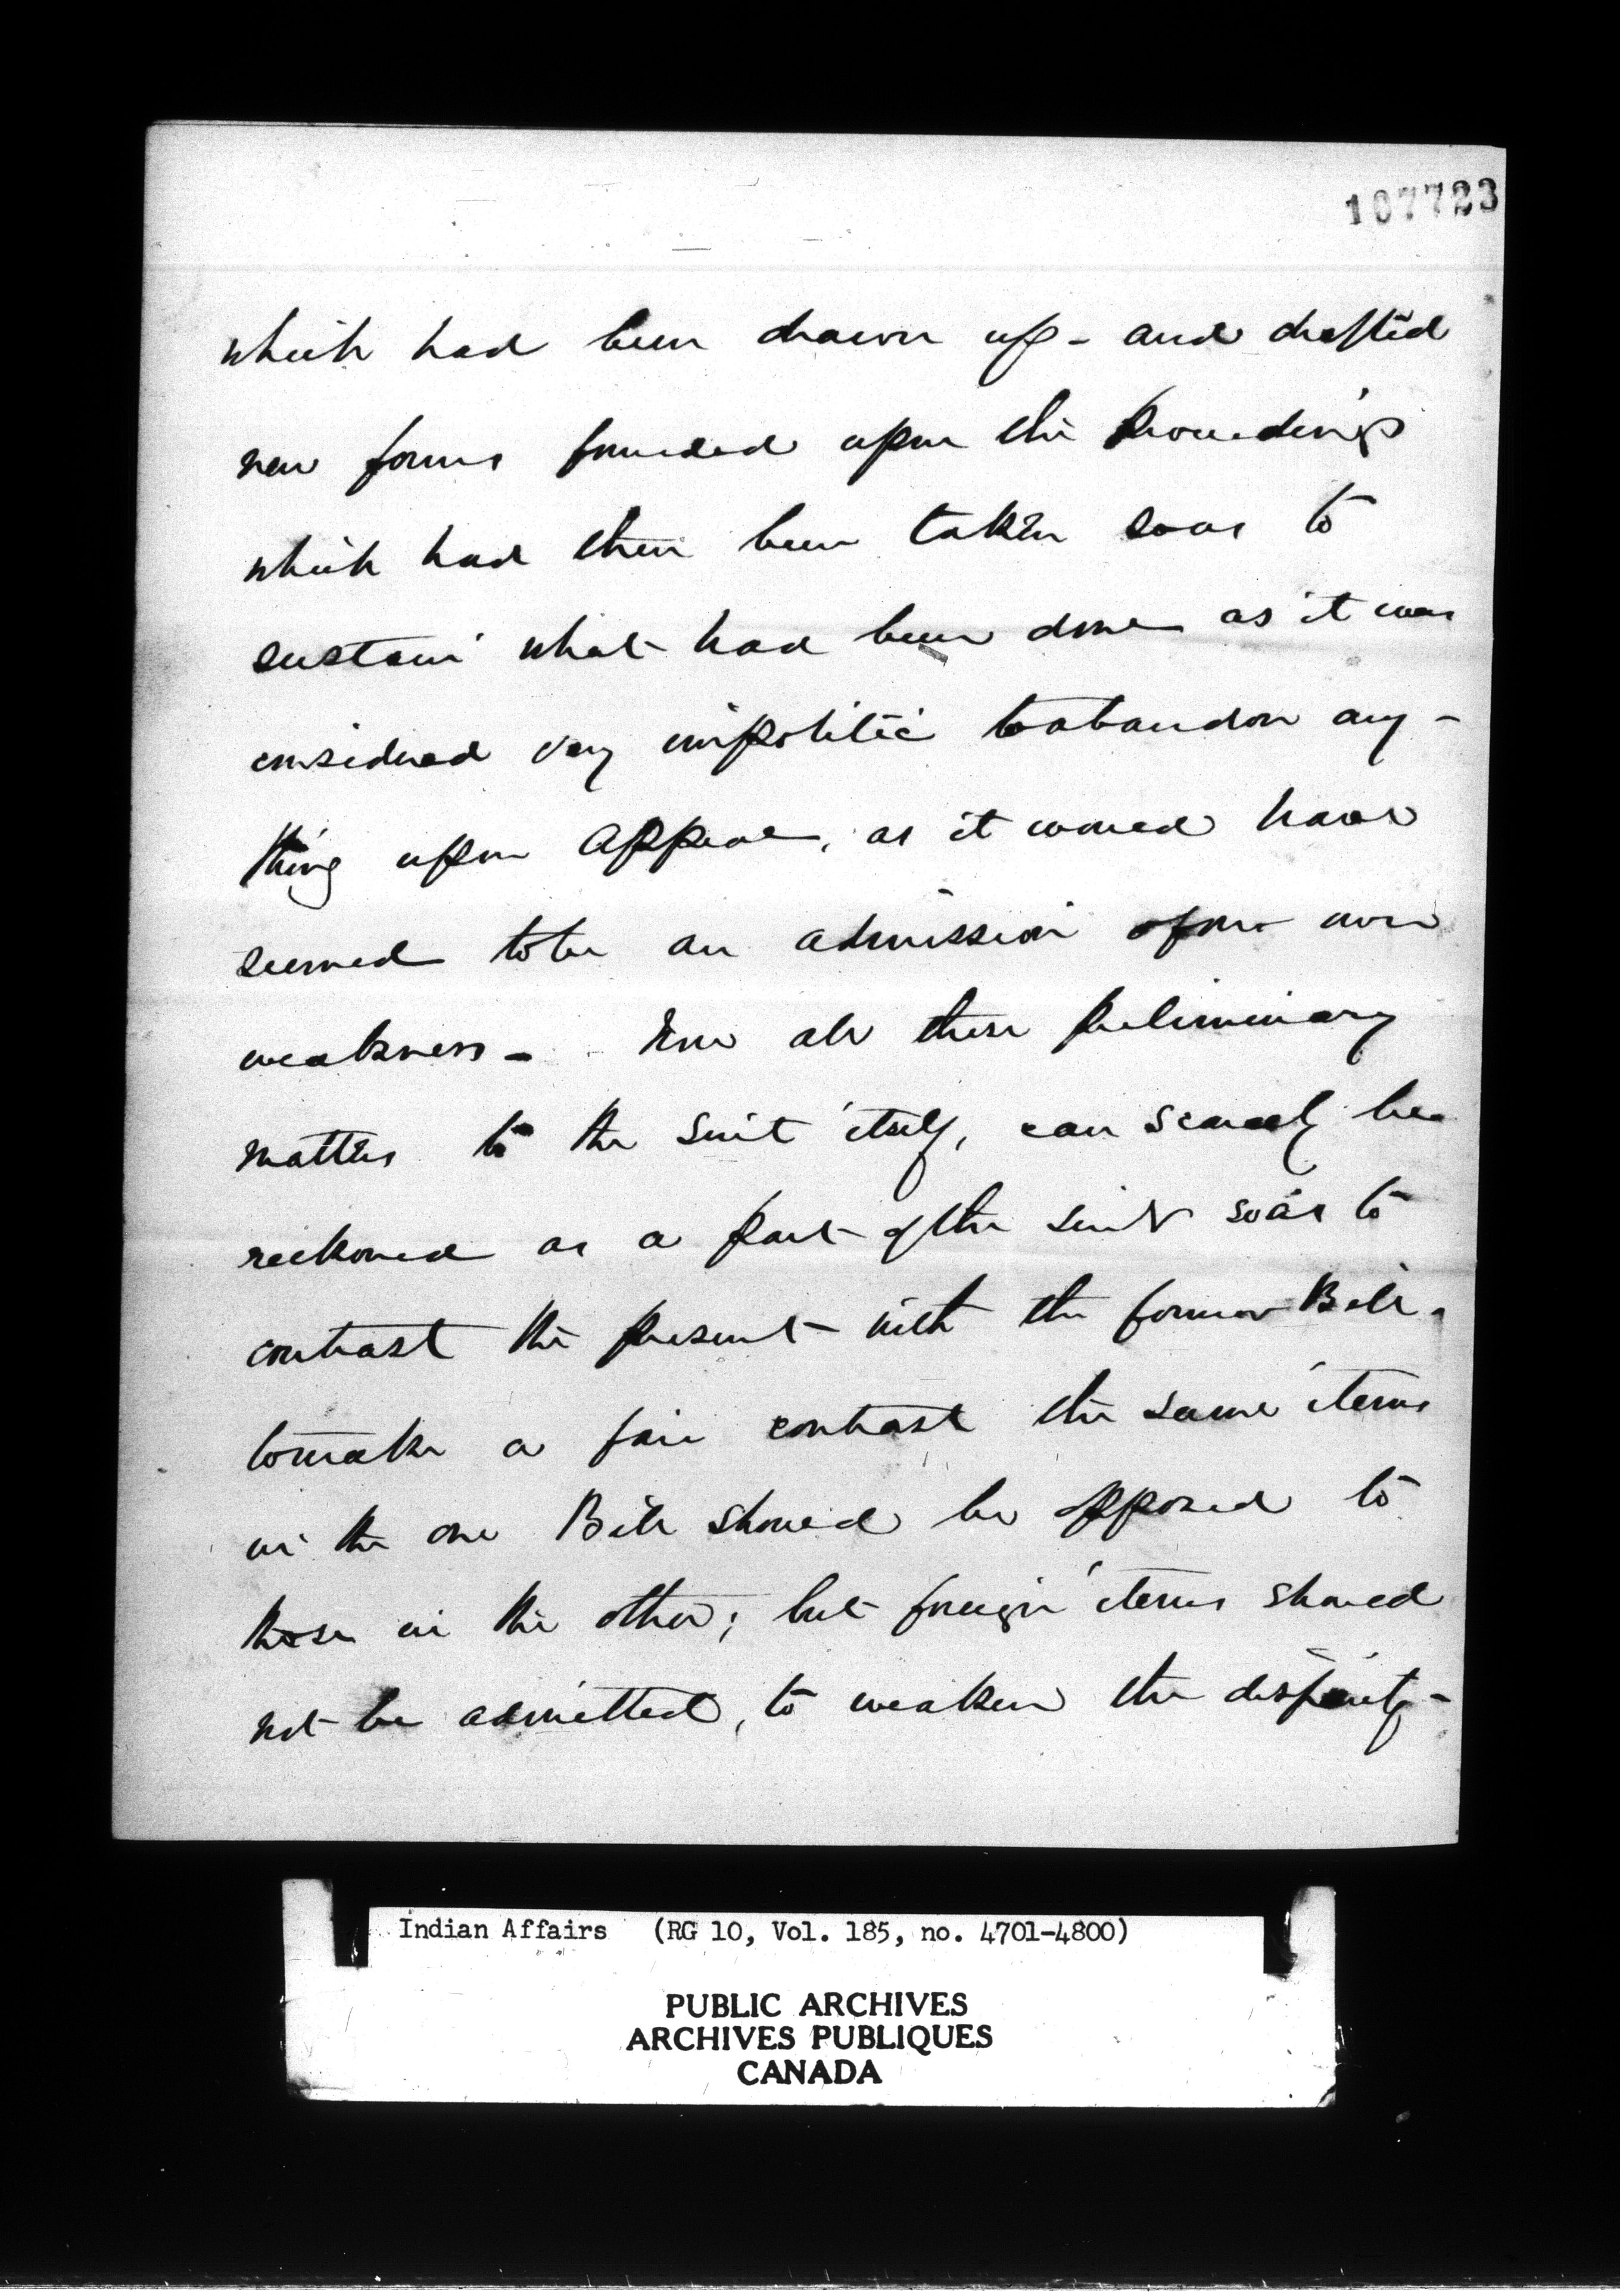 107723
which had been drawn up - and drafted
new forms founded upon the proceedings
which had then been taken so as to
sustain what had been done as it was
considered very impolitic to abandon any-
thing upon Appeal, as it would have
seemed to be an admission of our own
weakness - Now all these preliminary
matters to the suit itself, can scarcely be
reckoned as a part of the suit so as to
contrast the present with the former Bill.
to make a fair contrast the same items
in the one Bill should be opposed to
those in the other; but foreign items should
not be admitted, to weaken the disparity -
Indian Affairs (RG 10, Vol. 185, no. 4701-4800)
PUBLIC ARCHIVES
ARCHIVES PUBLIQUES
CANADA